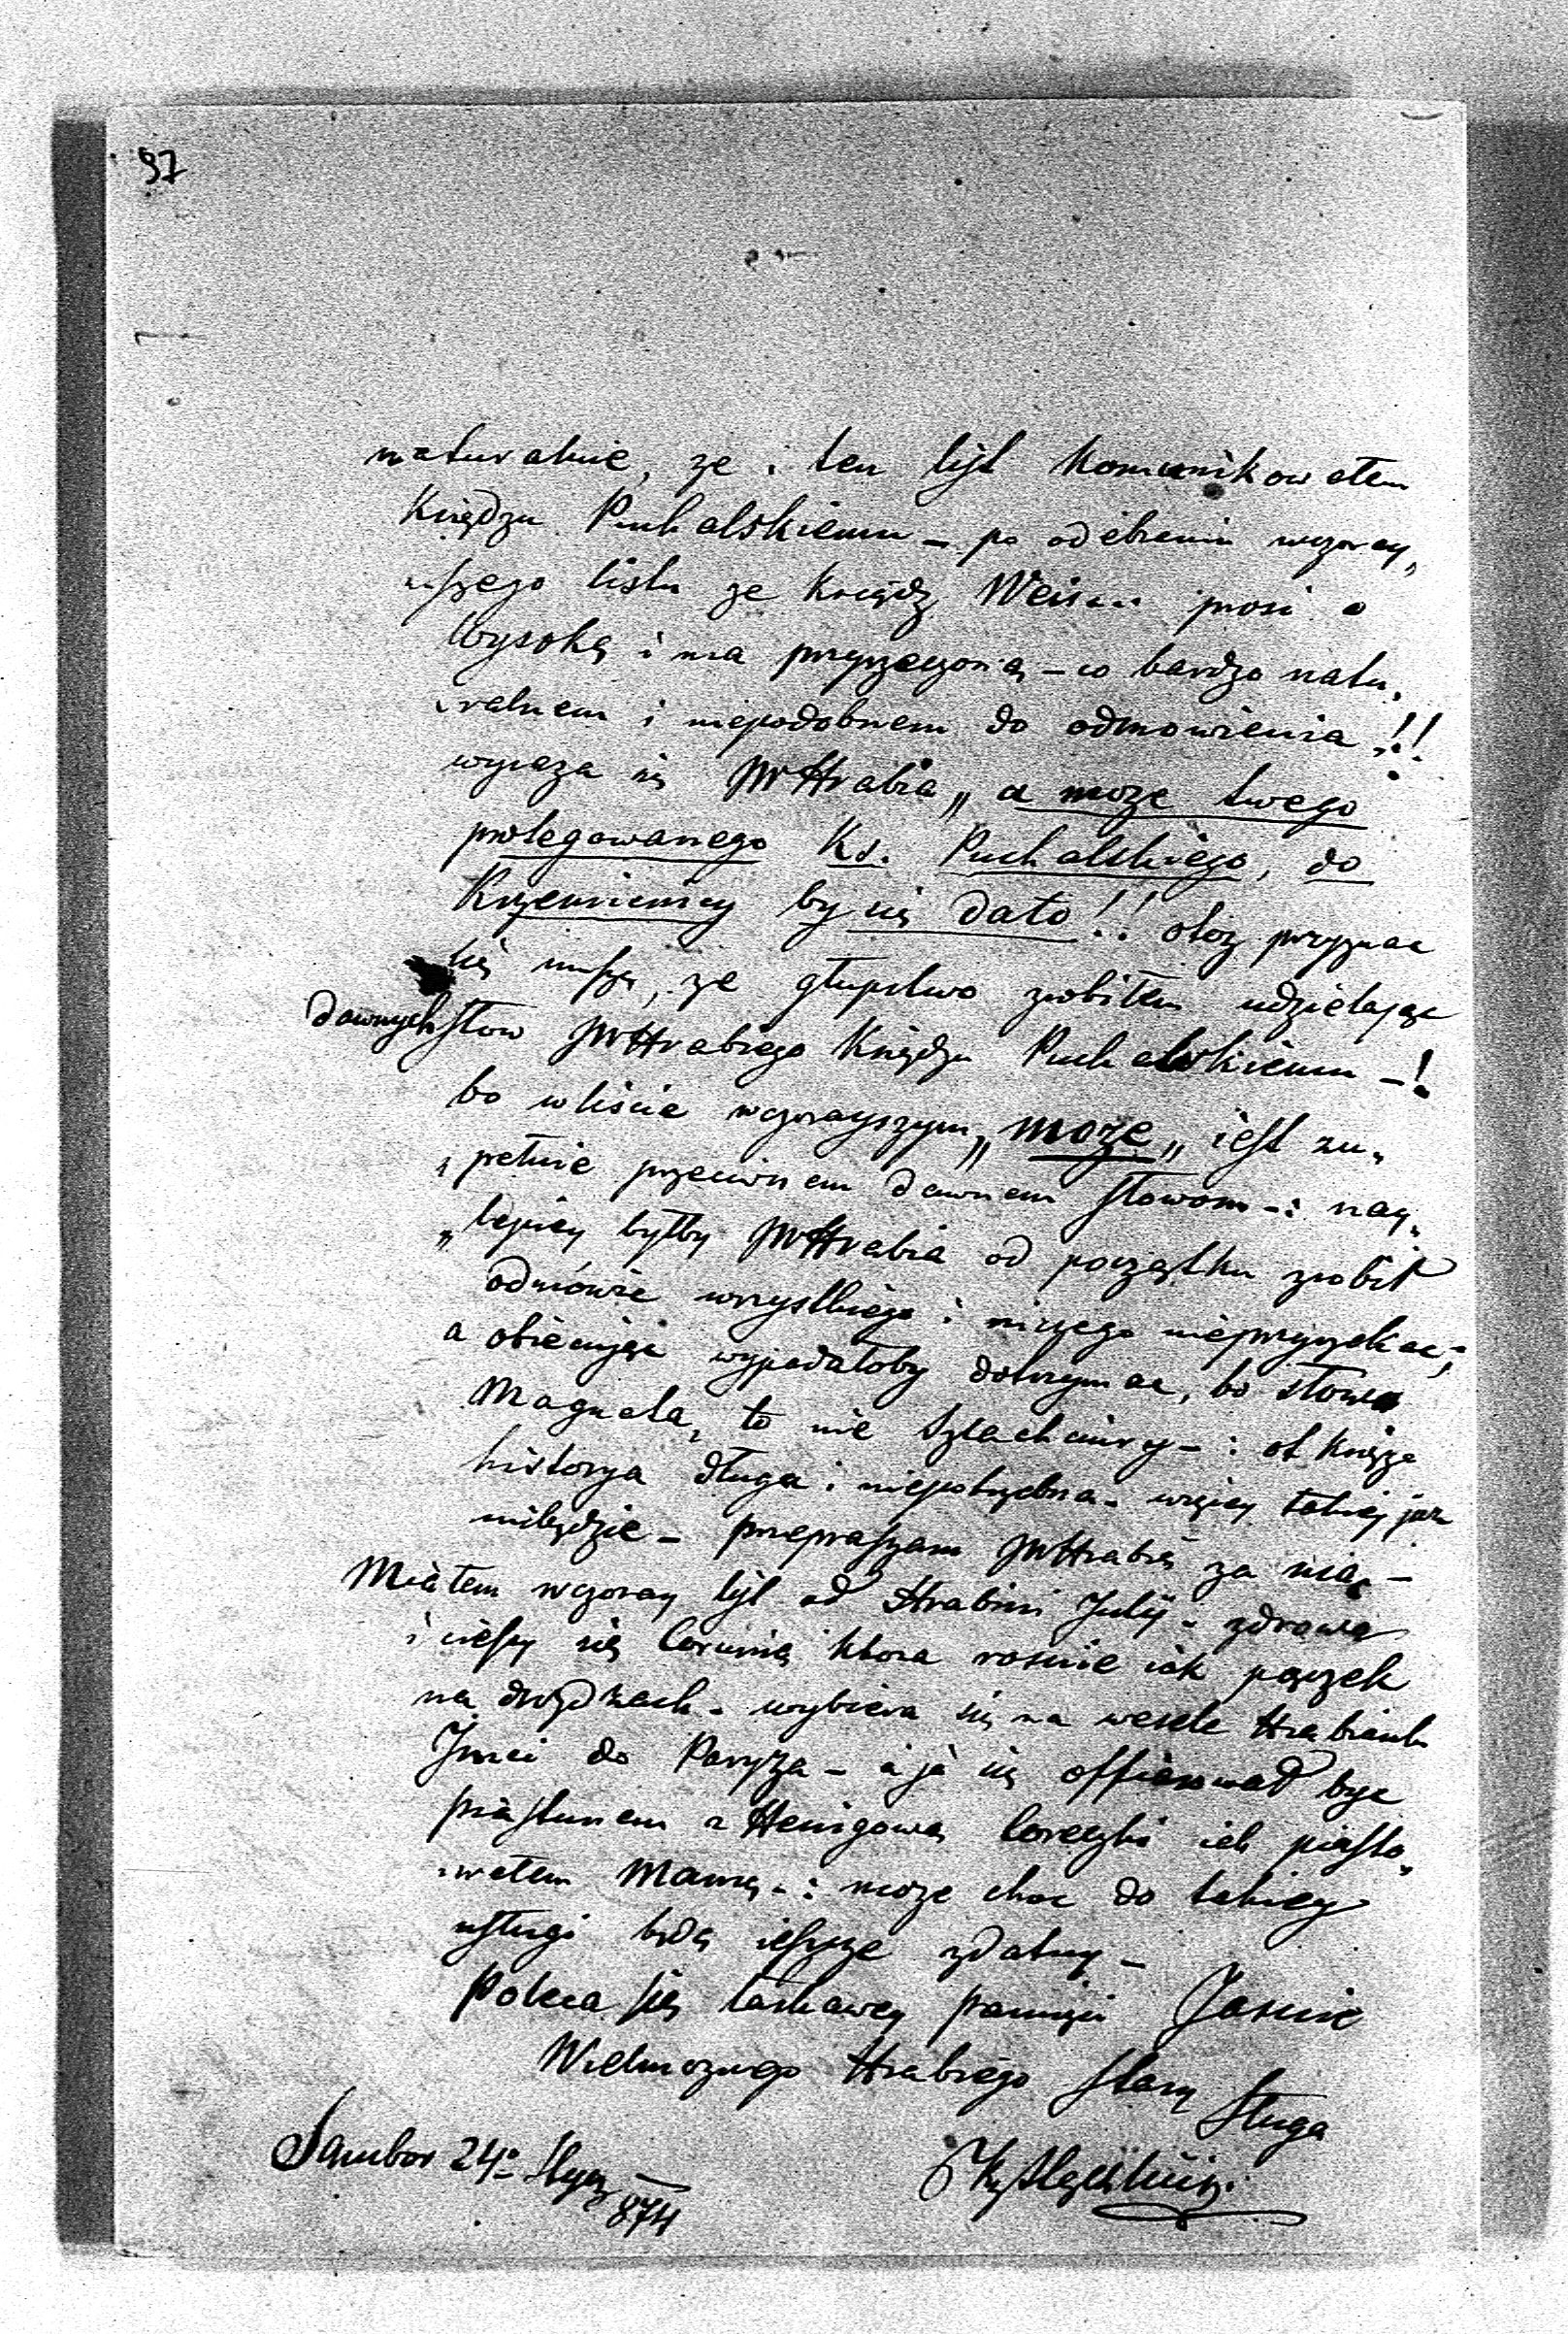 97
naturalnie, ze i ten list komunikowałem
Księdzu Puchalskiemu – po odebraniu wczoray„
„szego listu ze Ksiądz prosi o
Wysoką i ma przyrzeczoną – co bardzo natu„
„ralnem i niepodobnem do odmowienia!!!
wyraza się JWHrabia „a moze twego
protegowanego Ks. Puchalskiego, do
Krzemienicy by się dało!! otoz przyznac
się muszę, ze głupstwo zrobiłem udzielając
dawnych słow JWHrabiego Księdzu Puchalskiemu –!
bo w liscie wczorayszym „moze„ iest zu„
„pełnie przeciwnem dawnem słowom –: nay„
„lepiey byłby JWHrabia od początku zrobił
odmówic wszystkiego i niczego nieprzyrzekac;
a obiecując wypadałoby dotrzymac, bo słowo
Magnata, to nie Szlachciury –: ot księza
historya długa i niepotrzebna – więcey takiej juz
niebędzie – przepraszam JWHrabię za nią –
Miałem wczoray list od Hrabini Julij – zdrowa
i cieszy się Corunią ktora rosnie iak pączek
na drozdzach – wybiera się na wesele Hrabianki
Jmci do Paryza – a ja się offiarował byc
piastunem z Henigową Coreczki ich piasto„
„wałem Mamę –: moze choc do takiey
usługi będę ieszcze zdatny –
Poleca się łaskawey pamięci Jasnie
Wielmoznego Hrabiego stary
Sługa
Sambor 24º Stycz
874